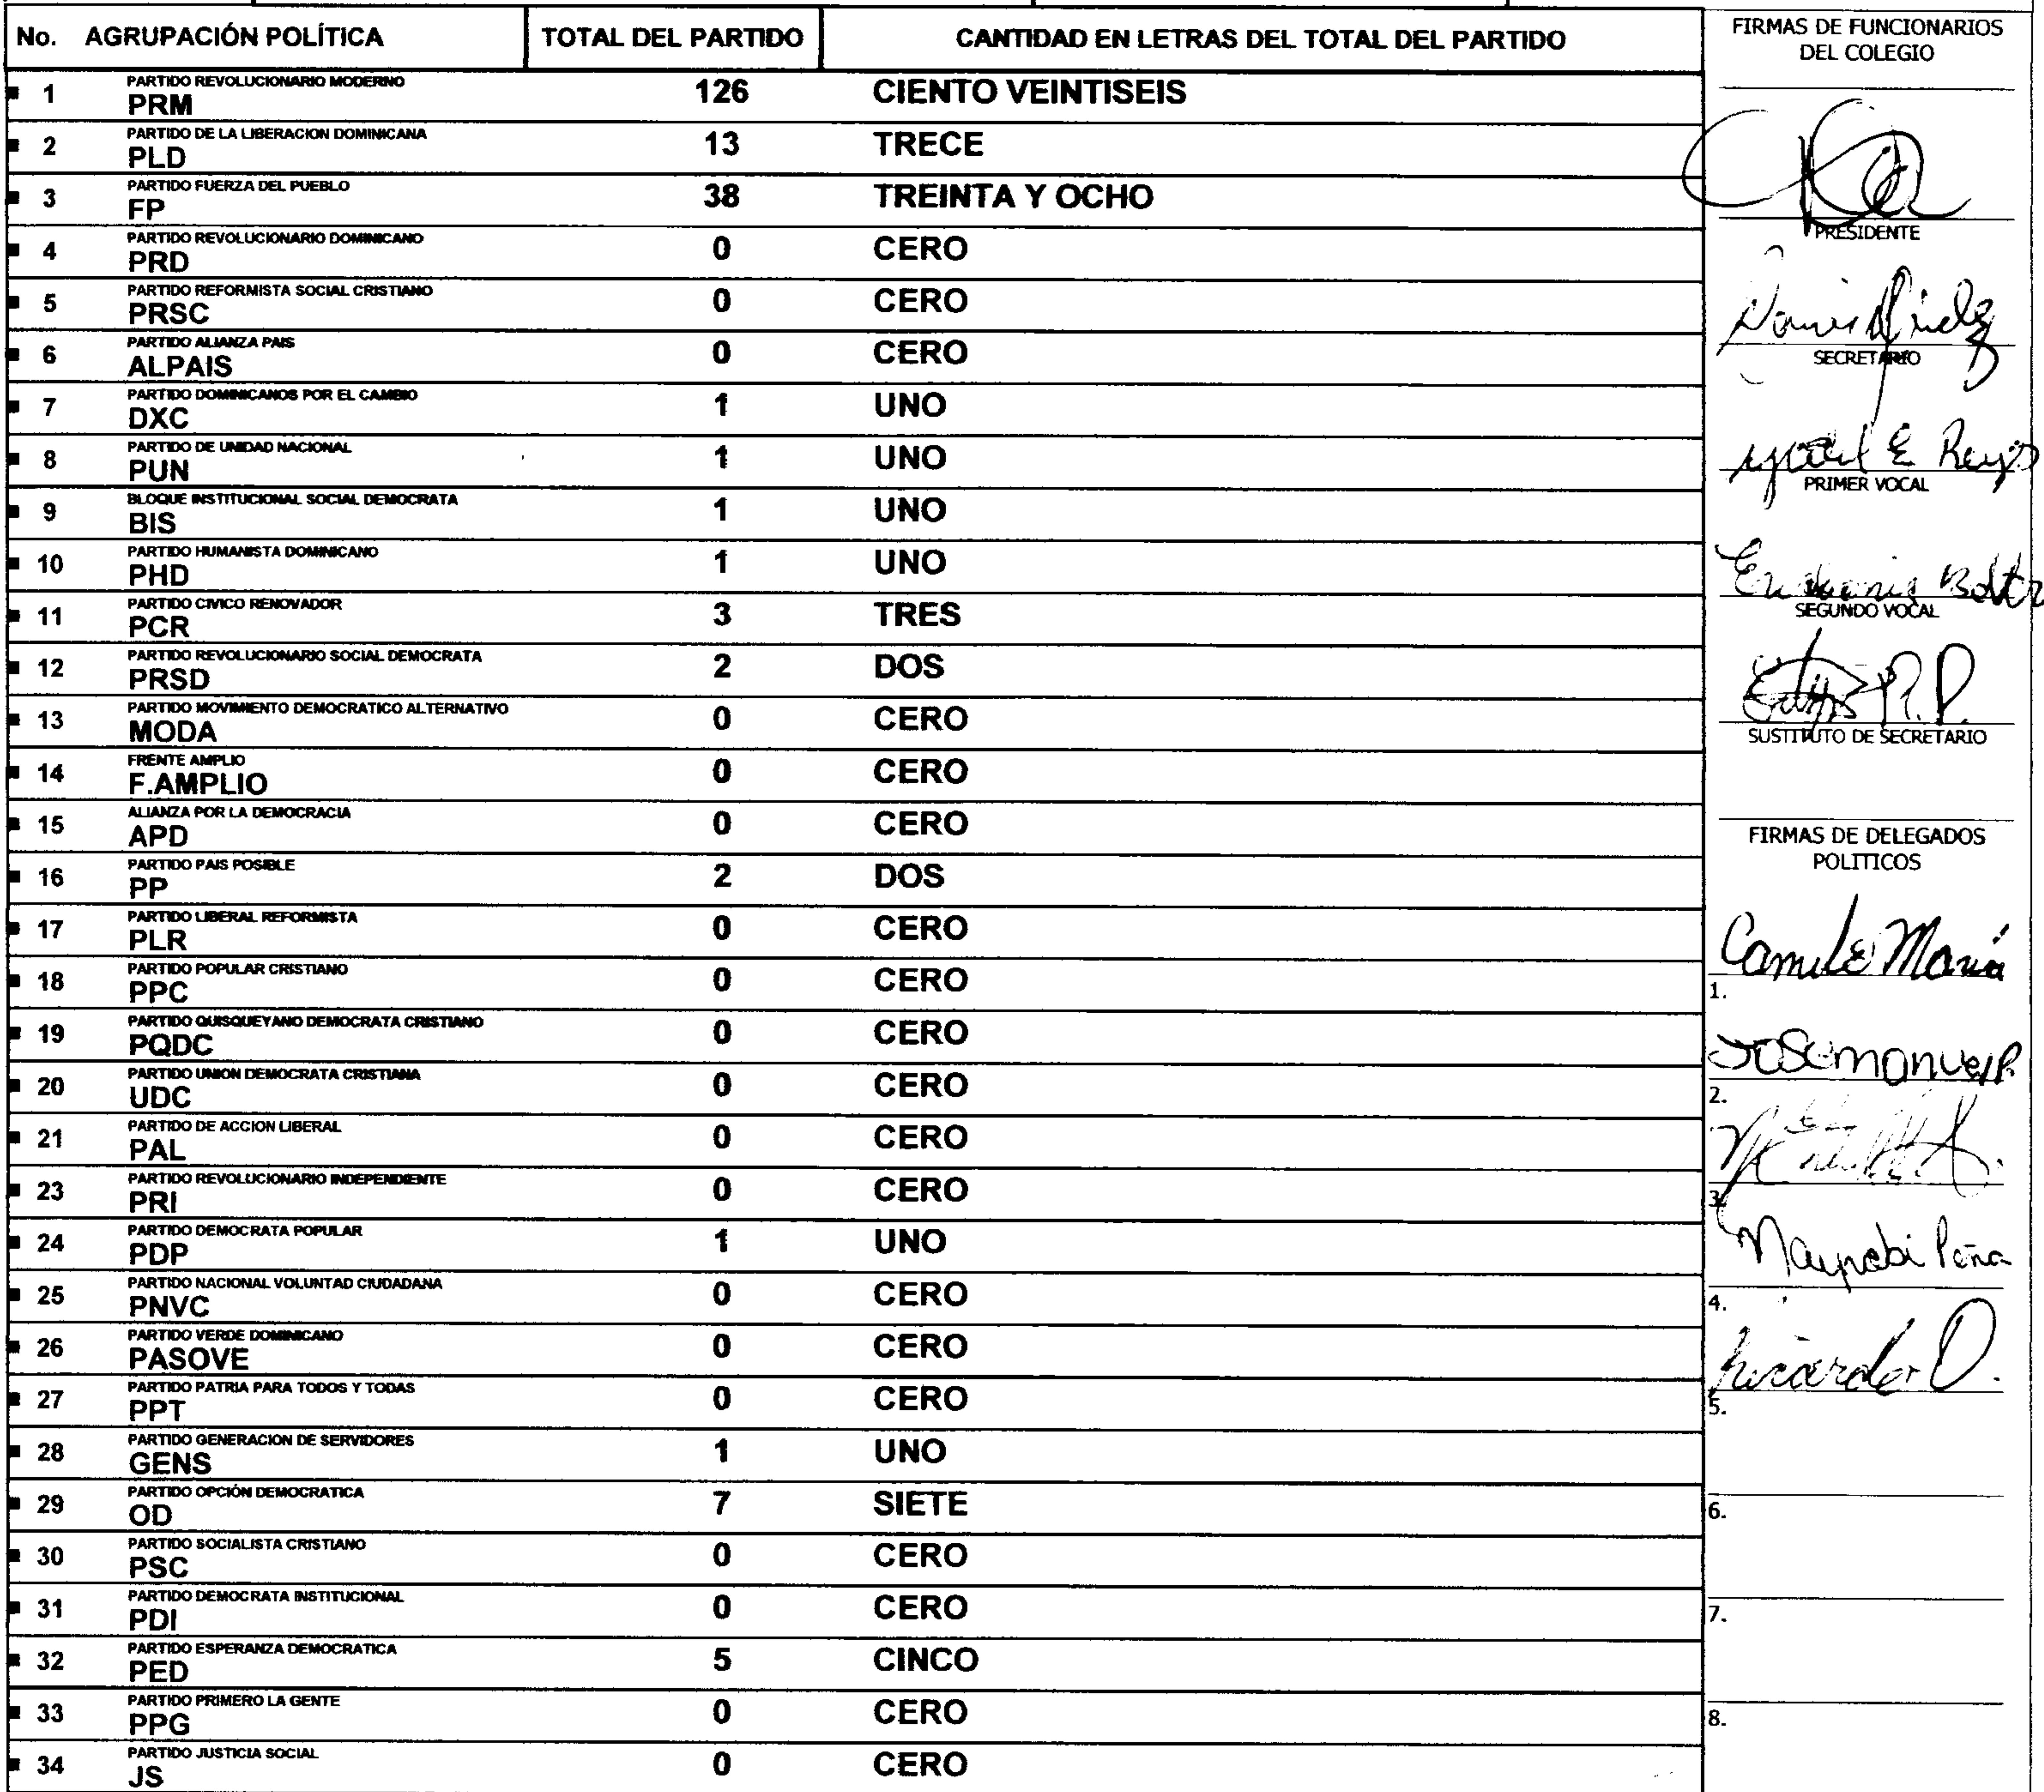 No. AGRUPACIÓN POLÍTICA TOTAL DEL PARTIDO CANTIDAD EN LETRAS DEL TOTAL DEL PARTIDO
PARTIDO REVOLUCIONARIO MODERNO
1 PRM 126 CIENTO VEINTISEIS
PARTIDO DE LA LIBERACION DOMINICANA
2 PLD 13 TRECE
PARTIDO FUERZA DEL PUEBLO
3 FP 38 TREINTA Y OCHO
PARTIDO REVOLUCIONARIO DOMINICANO
4 PRD 0 CERO
PARTIDO REFORMISTA SOCIAL CRISTIANO
5 PRSC 0 CERO
PARTIDO ALIANZA PAIS
6 ALPAIS 0 CERO
PARTIDO DOMINICANOS POR EL CAMBIO
7 DXC 1 UNO
PARTIDO DE UNIDAD NACIONAL
8 PUN 1 UNO
BLOQUE INSTITUCIONAL SOCIAL DEMOCRATA
9 BIS 1 UNO
PARTIDO HUMANISTA DOMINICANO
10 PHD 1 UNO
PARTIDO CIVICO RENOVADOR
11 PCR 3 TRES
PARTIDO REVOLUCIONARIO SOCIAL DEMOCRATA
12 PRSD 2 DOS
PARTIDO MOVIMIENTO DEMOCRATICO ALTERNATIVO
13 MODA 0 CERO
FRENTE AMPLIO
14 F.AMPLIO 0 CERO
ALIANZA POR LA DEMOCRACIA
15 APD 0 CERO
PARTIDO PAIS POSIBLE
16 PP 2 DOS
PARTIDO LIBERAL REFORMISTA
17 PLR 0 CERO
PARTIDO POPULAR CRISTIANO
18 PPC 0 CERO
PARTIDO QUISQUEYANO DEMOCRATA CRISTIANO
19 PQDC 0 CERO
PARTIDO UNION DEMOCRATA CRISTIANA
20 UDC 0 CERO
PARTIDO DE ACCION LIBERAL
21 PAL 0 CERO
PARTIDO REVOLUCIONARIO INDEPENDIENTE
23 PRI 0 CERO
PARTIDO DEMOCRATA POPULAR
24 PDP 1 UNO
PARTIDO NACIONAL VOLUNTAD CIUDADANA
25 PNVC 0 CERO
PARTIDO VERDE DOMINICANO
26 PASOVE 0 CERO
PARTIDO PATRIA PARA TODOS Y TODAS
27 PPT 0 CERO
PARTIDO GENERACION DE SERVIDORES
28 GENS 1 UNO
PARTIDO OPCIÓN DEMOCRATICA
29 OD 7 SIETE
PARTIDO SOCIALISTA CRISTIANO
30 PSC 0 CERO
PARTIDO DEMOCRATA INSTITUCIONAL
31 PDI 0 CERO
PARTIDO ESPERANZA DEMOCRATICA
32 PED 5 CINCO
PARTIDO PRIMERO LA GENTE
33 PPG 0 CERO
PARTIDO JUSTICIA SOCIAL
34 JS 0 CERO
FIRMAS DE FUNCIONARIOS
DEL COLEGIO
PRESIDENTE
SECRETARIO
E Reyes
PRIMER VOCAL
SEGUNDO VOCAL
R.P.
SUSTITUTO DE SECRETARIO
FIRMAS DE DELEGADOS
POLITICOS
Camile Maria
1.
Jose manuel P.
2.
3.
Peña
4.
Ricardo O.
5.
6.
7.
8.